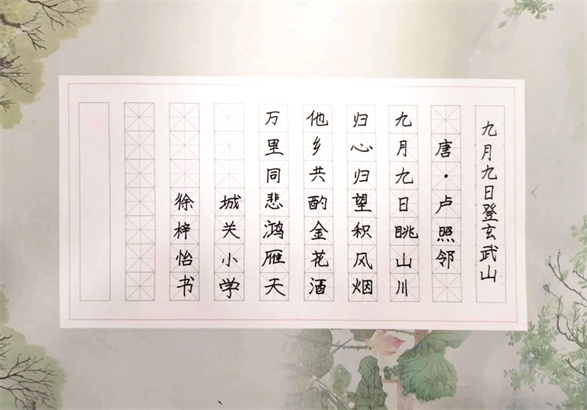 九月九日登玄武山
唐·卢照邻
九月九日眺山川
归心归望积风烟
他乡共酌金花酒
万里同悲鸿雁天
城关小学
徐梓怡书